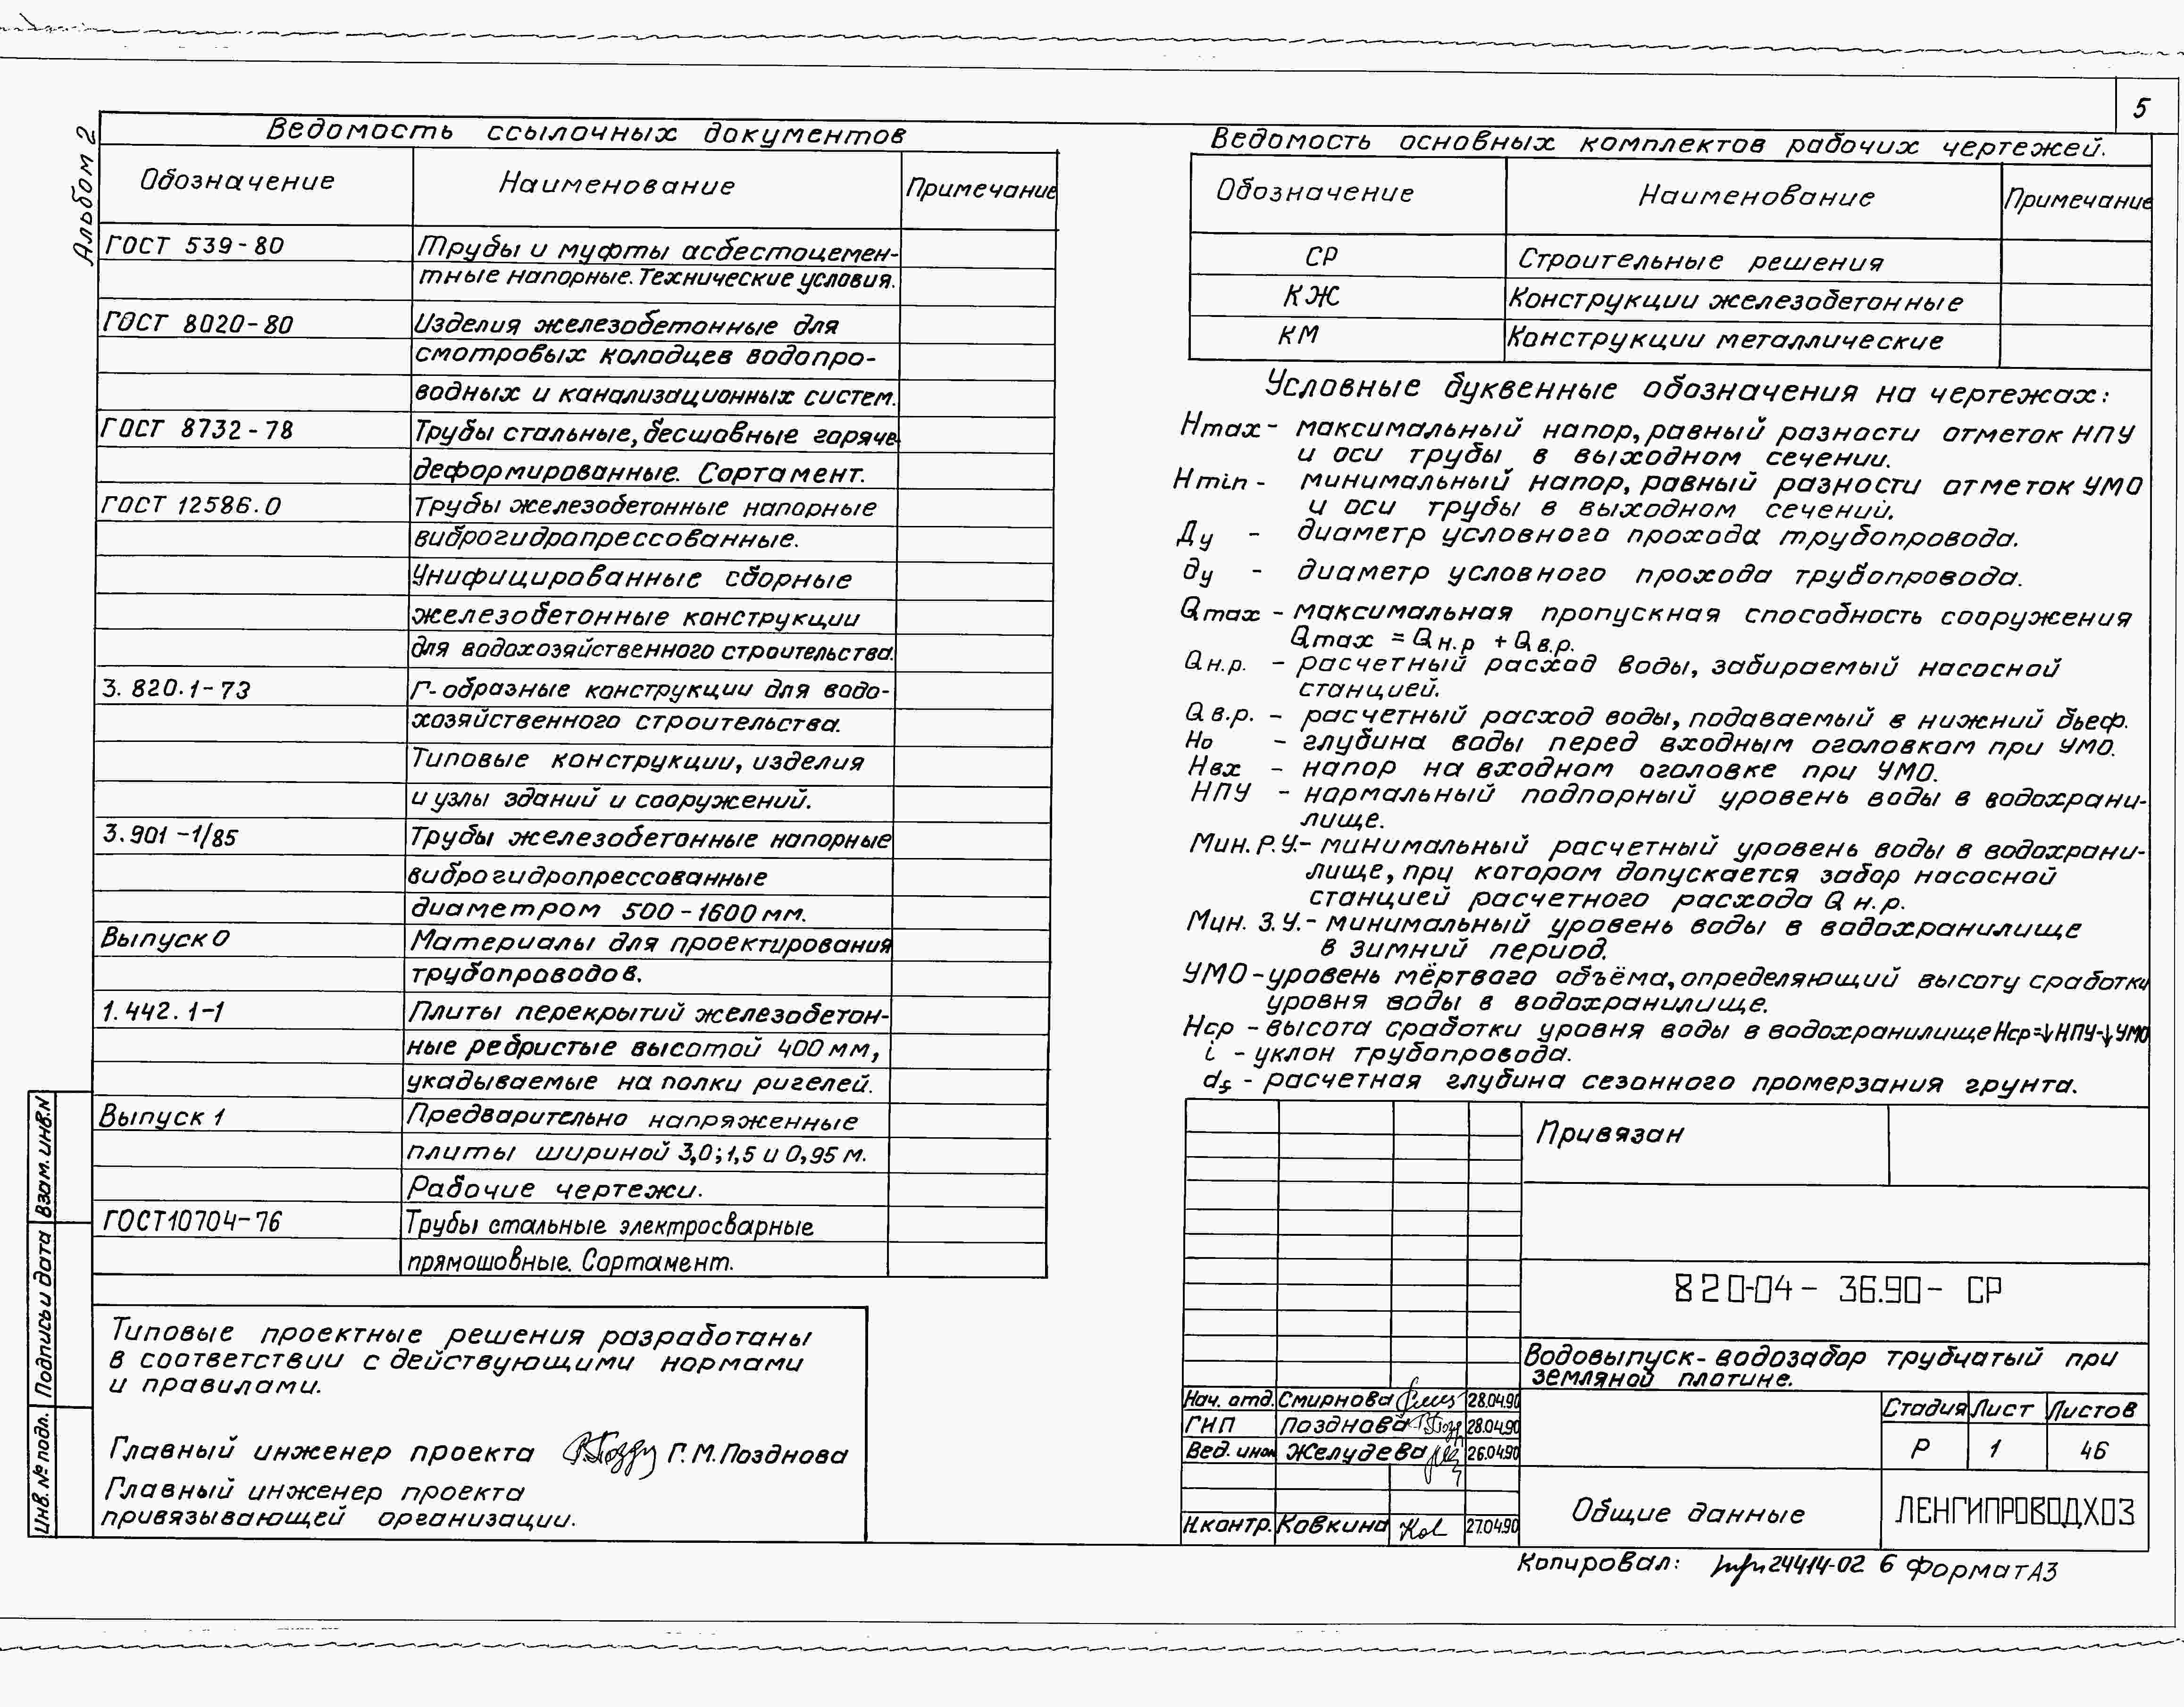 5
Альбом 2
Ведомость ссылочных документов
Обозначение Наименование Примечание
ГОСТ 539-80 Трубы и муфты асбестоцемен-
тные напорные. Технические условия.
ГОСТ 8020-80 Изделия железобетонные для
смотровых колодцев водопро-
водных и канализационных систем.
ГОСТ 8732-78 Трубы стальные, бесшовные горяче
деформированные. Сортамент.
ГОСТ 12586.0 Трубы железобетонные напорные
виброгидропрессованные.
Унифицированные сборные
железобетонные конструкции
для водохозяйственного строительства.
3.820.1-73 Г-образные конструкции для водо-
хозяйственного строительства.
Типовые конструкции, изделия
и узлы зданий и сооружений.
3.901-1/85 Трубы железобетонные напорные
виброгидропрессованные
диаметром 500-1600 мм.
Выпуск 0 Материалы для проектирования
трубопроводов.
1.442.1-1 Плиты перекрытий железобетон-
ные ребристые высотой 400 мм,
укадываемые на полки ригелей.
Выпуск 1 Предварительно напряженные
плиты шириной 3,0; 1,5 и 0,95 м.
Рабочие чертежи.
ГОСТ 10704-76 Трубы стальные электросварные
прямошовные. Сортамент.
Типовые проектные решения разработаны
в соответствии с действующими нормами
и правилами.
Главный инженер проекта Г.М.Позднова
Главный инженер проекта
привязывающей организации.
Взам. инв.N
Подпись и дата
Инв. № подл.
Ведомость основных комплектов рабочих чертежей.
Обозначение Наименование Примечание
СР Строительные решения
КЖ Конструкции железобетонные
КМ Конструкции металлические
Условные буквенные обозначения на чертежах:
Hmax - максимальный напор, равный разности отметок НПУ
и оси трубы в выходном сечении.
Hmin - минимальный напор, равный разности отметок УМО
и оси трубы в выходном сечений.
Ду - диаметр условного прохода трубопровода.
ду - диаметр условного прохода трубопровода.
Qmax - максимальная пропускная способность сооружения
Qmax = Qн.р + Qв.р.
Qн.р. - расчетный расход воды, забираемый насосной
станцией.
Qв.р. - расчетный расход воды, подаваемый в нижний бьеф.
Но - глубина воды перед входным оголовком при УМО.
Нвх - напор на входном оголовке при УМО.
НПУ - нормальный подпорный уровень воды в водохрани-
лище.
Мин.Р.У.- минимальный расчетный уровень воды в водохрани-
лище, при котором допускается забор насосной
станцией расчетного расхода Qн.р.
Мин.З.У.- минимальный уровень воды в водохранилище
в зимний период.
УМО - уровень мёртвого объёма, определяющий высоту сработки
уровня воды в водохранилище.
Нср - высота сработки уровня воды в водохранилище Нср=↓НПУ-↓УМО
i - уклон трубопровода.
df - расчетная глубина сезонного промерзания грунта.
Привязан
820-04-36.90-СР
Водовыпуск-водозабор трубчатый при
земляной плотине.
Нач. отд. Смирнова 28.04.90
ГИП Позднова 28.04.90
Вед. инж Желудева 26.04.90
Н.контр. Ковкина 27.04.90
Стадия Лист Листов
Р 1 46
Общие данные
ЛЕНГИПРОВОДХОЗ
Копировал: 24414-02 6 Формат А3